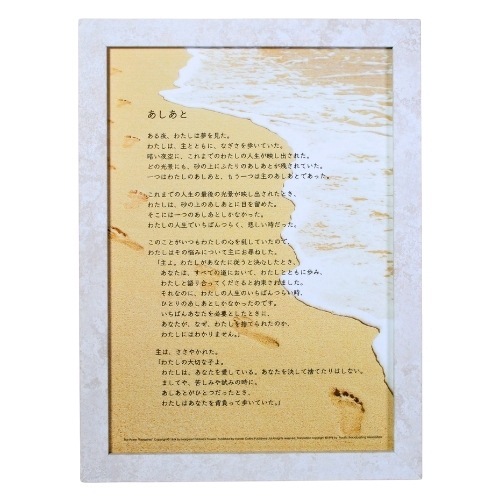 あしあと
ある夜、わたしは夢を見た。
わたしは、主とともに、なぎさを歩いていた。
暗い夜空に、これまでのわたしの人生が映し出された。
どの光景にも、砂の上にふたりのあしあとが残されていた。
一つはわたしのあしあと、もう一つは主のあしあとであった。
これまでの人生の最後の光景が映し出されたとき、
わたしは、砂の上のあしあとに目を留めた。
そこには一つのあしあとしかなかった。
わたしの人生でいちばんつらく、悲しい時だった。
このことがいつもわたしの心を乱していたので、
わたしはその悩みについて主にお尋ねした。
「主よ。わたしがあなたに従うと決心したとき、
あなたは、すべての道において、わたしとともに歩み、
わたしと語り合ってくださると約束されました。
それなのに、わたしの人生のいちばんつらい時、
ひとりのあしあとしかなかったのです。
いちばんあなたを必要としたときに、
あなたが、なぜ、わたしを捨てられたのか、
わたしにはわかりません。」
主は、ささやかれた。
「わたしの大切な子よ。
わたしは、あなたを愛している。あなたを決して捨てたりはしない。
ましてや、苦しみや試みの時に。
あしあとがひとつだったとき、
わたしはあなたを背負って歩いていた。」